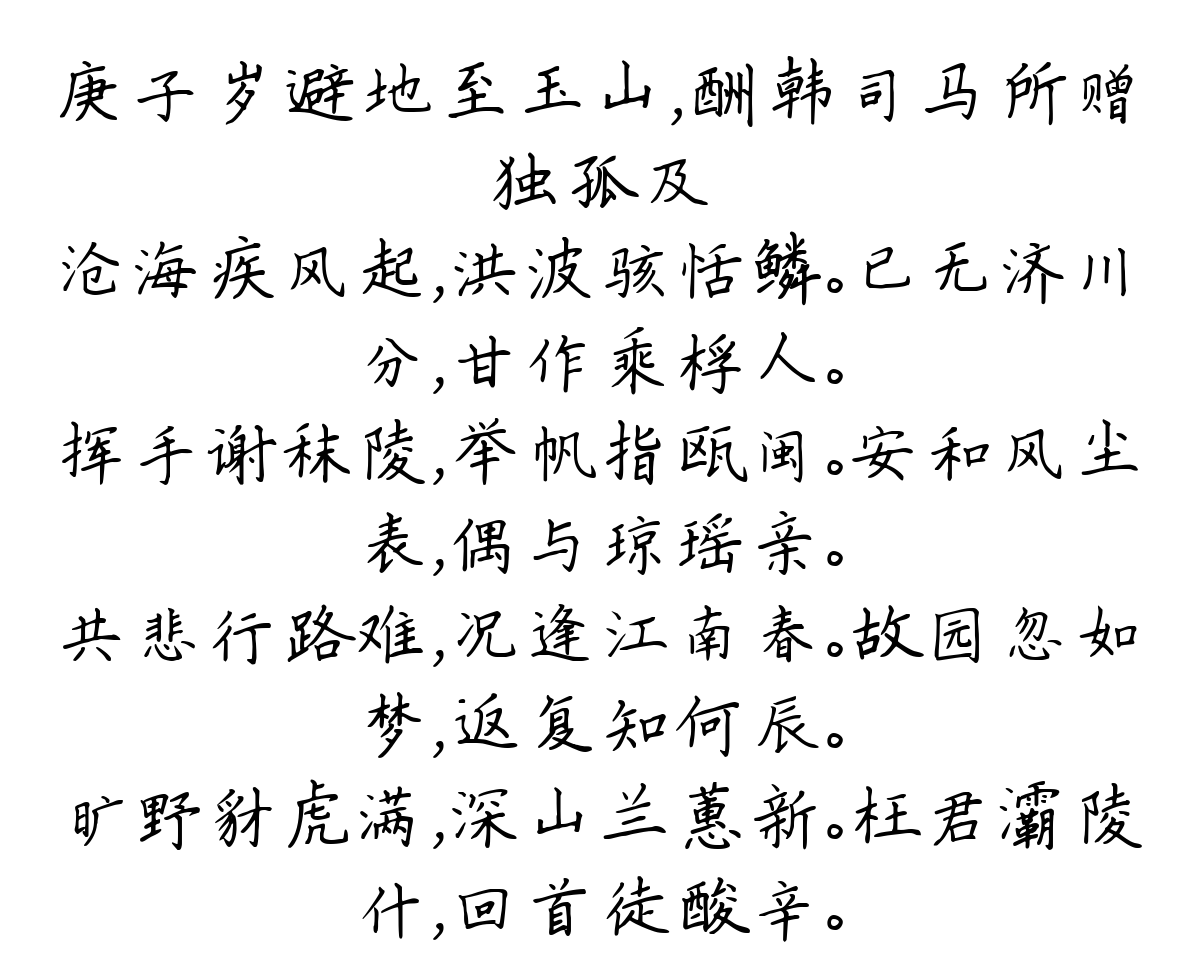 庚子岁避地至玉山,酬韩司马所赠
独孤及
沧海疾风起,洪波骇恬鳞。已无济川
分,甘作乘桴人。
挥手谢秣陵,举帆指瓯闽。安和风尘
表,偶与琼瑶亲。
共悲行路难,况逢江南春。故园忽如
梦,返复知何辰。
旷野豺虎满,深山兰蕙新。枉君灞陵
什,回首徒酸辛。